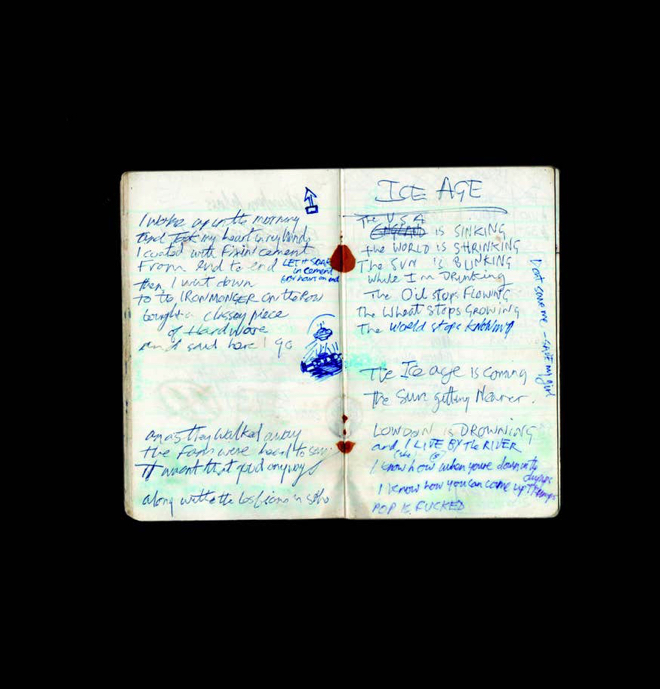 I woke up in the morning
and took my heart in my hand
I coated with Fixin cement
From end to end
LET IT SOAK
in cement
for hours on end
then I went down
to the IRONMONGER on the Row
bought a classey piece
of Hardware
and I said here I go
and as they walked away
the Fans were heard to say
it weren't that good anyways
along with the lesbians in soho
ICE AGE
The USA
ENGLAND IS SINKING
the WORLD is SHRINKING
The SUN IS BLINKING
While I'm Drinking
The Oil stops FLOWING
The Wheat Stops GROWING
The World Stops KNOWING
The Ice age is coming
the Sun getting Nearer.
LONDON is DROWNING
and I LIVE BY the RIVER
I know how when youre down in the
dumps
I know how you can come up Trumps
POP IS FUCKED